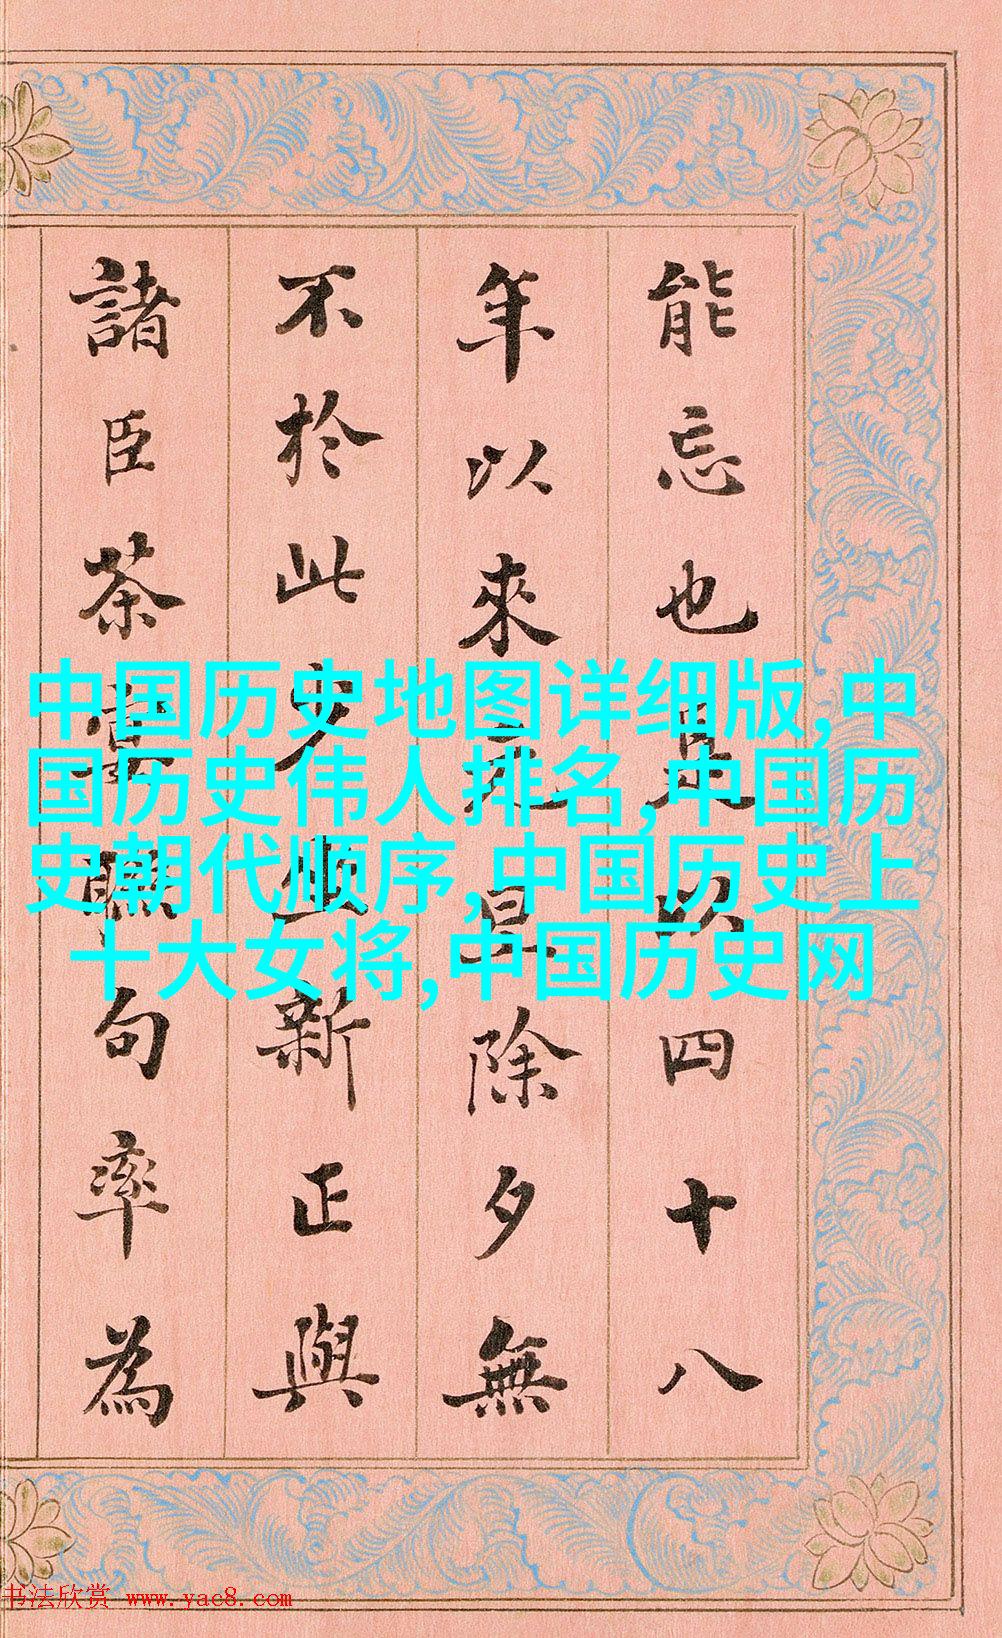 能忘也是以四十八
年以來除夕無
不於此夕新正與
諸臣茶宴聯句率為
中国历史地图详细版,中
国历史伟人排名,中国历
史朝代顺序,中国历史上
十大女将,中国历史网
书法欣赏 www.yac8.com